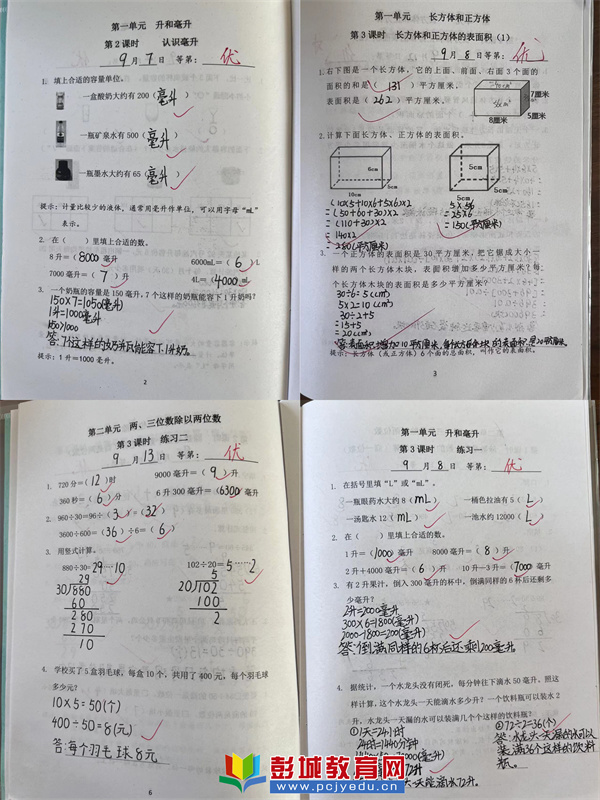 第一单元 升和毫升
第2课时 认识毫升
9月7日等第：优
1. 填上合适的容量单位。
一盒酸奶大约有200（毫升）
一瓶矿泉水有500（毫升）
一瓶墨水大约有65（毫升）
提示：计量比较少的液体，通常用毫升作单位，可以用字母“mL”
表示。
2. 在（ ）里填上合适的数。
8升＝（8000）毫升 6000mL＝（6）L
7000毫升＝（7）升 4L＝（4000）mL
3. 一个奶瓶的容量是150毫升，7个这样的奶瓶能容下1升奶吗？
150×7=1050(毫升)
1升=1000毫升
1050>1000
答:7个这样的奶瓶能容下1升奶.
提示：1升＝1000毫升。
2
第一单元 长方体和正方体
第3课时 长方体和正方体的表面积（1）
9月8日等第：优
1. 右下图是一个长方体，它的上面、前面、右面3个面的
面积的和是（131）平方厘米，
表面积是（262）平方厘米。
7厘米
5厘米
8厘米
2. 计算下面长方体、正方体的表面积。
6cm
5cm
10cm
5cm
5cm
5cm
(10×5+10×6+5×6)×2
=(50+60+30)×2
=(110+30)×2
=140×2
=280(平方厘米)
5×5×6
=25×6
=150(平方厘米)
3. 一个正方体的表面积是30平方厘米，把它锯成大小一
样的两个长方体木块，表面积增加多少平方厘米？每
个长方体木块的表面积是多少平方厘米？
30÷6=5(cm²)
5×2=10(cm²)
30÷2+5
=15+5
=20(cm²)
答:表面积增加10平方厘米,每个长方体木块的表面积是20平方厘米.
提示：长方体（或正方体）6个面的总面积，叫作它的表面积。
3
第二单元 两、三位数除以两位数
第3课时 练习二
9月13日等第：优
1. 720分＝（12）时 9000毫升＝（9）升
360秒＝（6）分 6升300毫升＝（6300）毫升
2. 960÷30＝96÷（3）＝（32）
3600÷600＝（36）÷6＝（6）
3. 用竖式计算。
880÷30＝29……10 102÷20＝5……2
29
30√880
60
280
270
10
5
20√102
100
2
4. 学校买了5盒羽毛球，每盒10个，共用了400元，每个羽毛球
多少元？
10×5=50(个)
400÷50=8(元)
答:每个羽毛球8元
6
第一单元 升和毫升
第3课时 练习一
9月8日等第：优
1. 在括号里填“L”或“mL”。
一瓶眼药水大约8（mL） 一桶色拉油有5（L）
一汤匙水12（mL） 一池水约12000（L）
2. 在（ ）里填上合适的数。
1升＝（1000）毫升 8000毫升＝（8）升
2升＋4000毫升＝（6）升 10升－3升＝（7000）毫升
3. 有2升果汁，倒入300毫升的杯中，倒满同样的6杯后还剩多
少毫升？
2升=2000毫升
300×6=1800(毫升)
2000-1800=200(毫升)
答:倒满同样的6杯后还剩200毫升.
4. 据统计，一个水龙头没有闭死，每分钟往下滴水50毫升。照这
样计算，这个水龙头一天能滴水多少升？一个饮料瓶可以装水2
升，水龙头一天漏的水可以装满几个这样的饮料瓶？
①1天=24小时
24时=1440分钟
②72÷2=36(个)
答:水龙头一天漏的水可以
装满36个这样的饮料
瓶.
一天能滴水72升.
彭城教育网
www.pcjyedu.cn